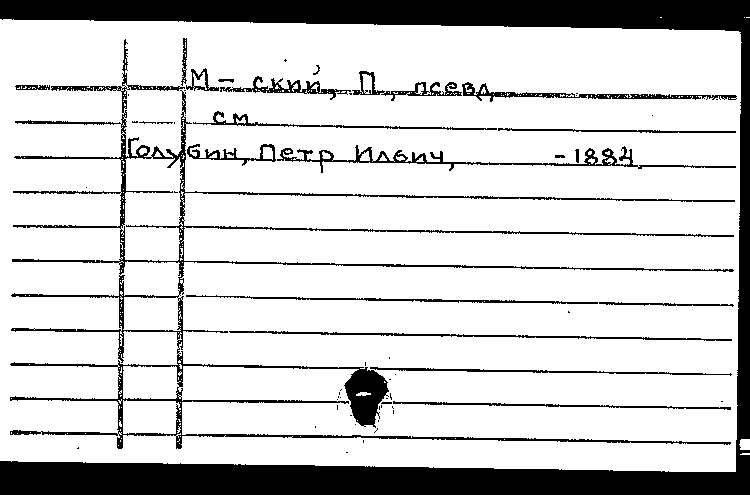 М - ский, П, псевд
см.
Голубин, Петр Ильич, -1884.